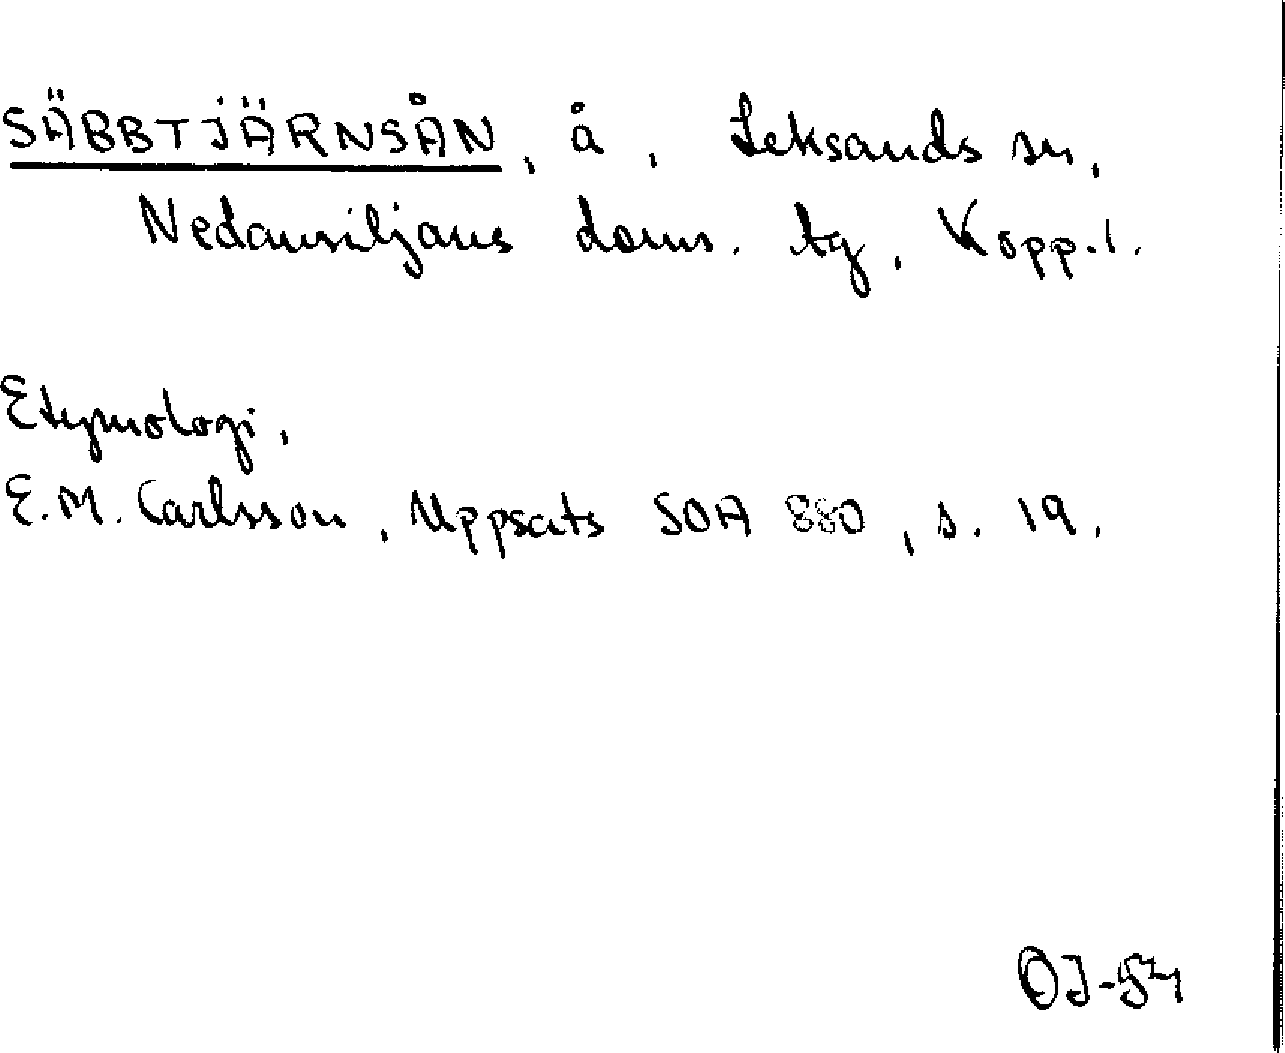 SÄBBTJÄRNSÅN, å, Leksands sn,
Nedansiljans doms. tg, Kopp.l.
Etymologi,
E.M. Carlsson, Uppsats SOA 880, s. 19.
OJ-54